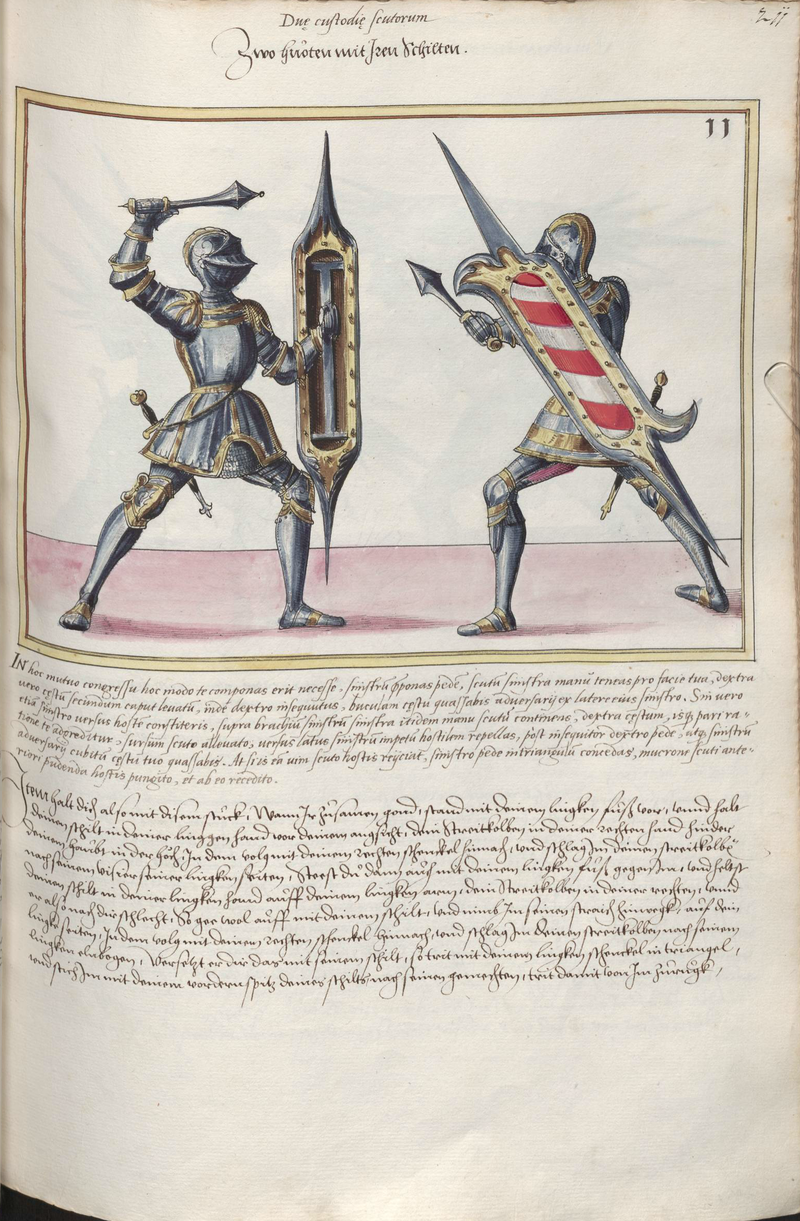 Duę custodię scutorum
211
Zwo huoten mit Iren Schilten.
11
IN hoc mutuo congressu hoc modo te componas erit necesse, sinistrũ p̱ponas pedẽ, scutũ sinistra manũ teneas pro facie tua, dextra
vero cęstũ secundum caput levatũ, inde dextro insequutus, buculam cęstu quassabis adversarij ex latere eius sinistro. Sin vero
etiã sinistro versus hostẽ constiteris, supra brachiũ sinistrũ sinistra itidem manu scutũ continens, dextra cęstum, isq̃ pari ra=
tione te adgreditur, sursum scuto allevato, versus latus sinistrũ impetũ hostilem repellas, post insequitor dextro pede, atq̃ sinistrũ
adversarij cubitũ cęstu tuo quassabis. At si is eã vim scuto hostis reijciat, sinistro pede in triangulũ concedas, mucrone scuti ante=
riori pudenda hostis pungito, et ab eo recedito.
Item halt dich also mit disem stuck, Wann Ir zusamen gond, so stand mit deinem lingken fuß vor, unnd halt
deinen schilt in deiner linggen hand vor deinem angsicht, dein Streitkolben in deiner rechten hand hinder
deinem haubt in der höch, In dem volg mit deinem rechten schenckel hinnach, und schlag Im deinen streitkolbẽ
nach seinem visier seiner lingken seiten, Steest du dann auch mit deinem lingken fuß gegen Im, und heltst
deinen schilt in deiner lingken hand auff deinem lingken arm, dein Streitkolben in deiner rechten, unnd
er also nach dir schlecht, So gee wol auff mit deinem schilt, und nimb Im seinen straich hinwegk, auf dein
lingke seiten, In dem volg mit deinen rechten schenckel hinnach, und schlag Im deinen streitkolben nach seinem
lingken elnbogen, Versetzt er dir das mit seinem schilt, so trit mit deinem lingken schenckel in triangel,
und stich Im mit deinem vordern spitz deines schilts nach seinen gemechten, trit damit von Im zurugk,